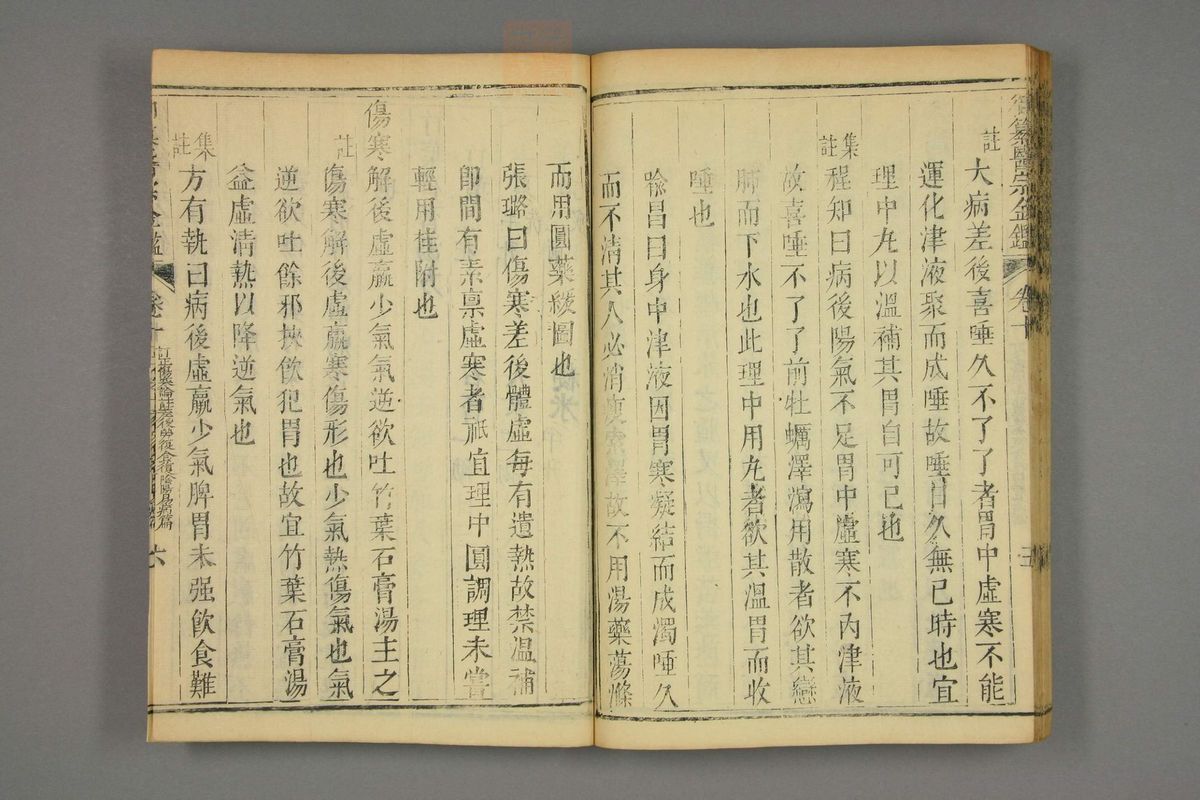 御纂醫宗金鑑 卷十 五
註 大病差後喜唾久不了了者胃中虛寒不能
運化津液聚而成唾故唾日久無已時也宜
理中丸以溫補其胃自可已也
集註 程知曰病後陽氣不足胃中虛寒不內津液
故喜唾不了了前牡蠣澤瀉用散者欲其戀
肺而下水也此理中用丸者欲其溫胃而收
唾也
喩昌曰身中津液因胃寒凝結而成濁唾久
而不清其人必消瘦索澤故不用湯藥蕩滌
而用圓藥緩圖也
張璐曰傷寒差後體虛每有遺熱故禁溫補
卽間有素禀虛寒者祇宜理中圓調理未嘗
輕用桂附也
傷寒解後虛羸少氣氣逆欲吐竹葉石膏湯主之
註 傷寒解後虛羸寒傷形也少氣熱傷氣也氣
逆欲吐餘邪挾飮犯胃也故宜竹葉石膏湯
益虛清熱以降逆氣也
集註 方有執曰病後虛羸少氣脾胃未强飮食難
卷十 六